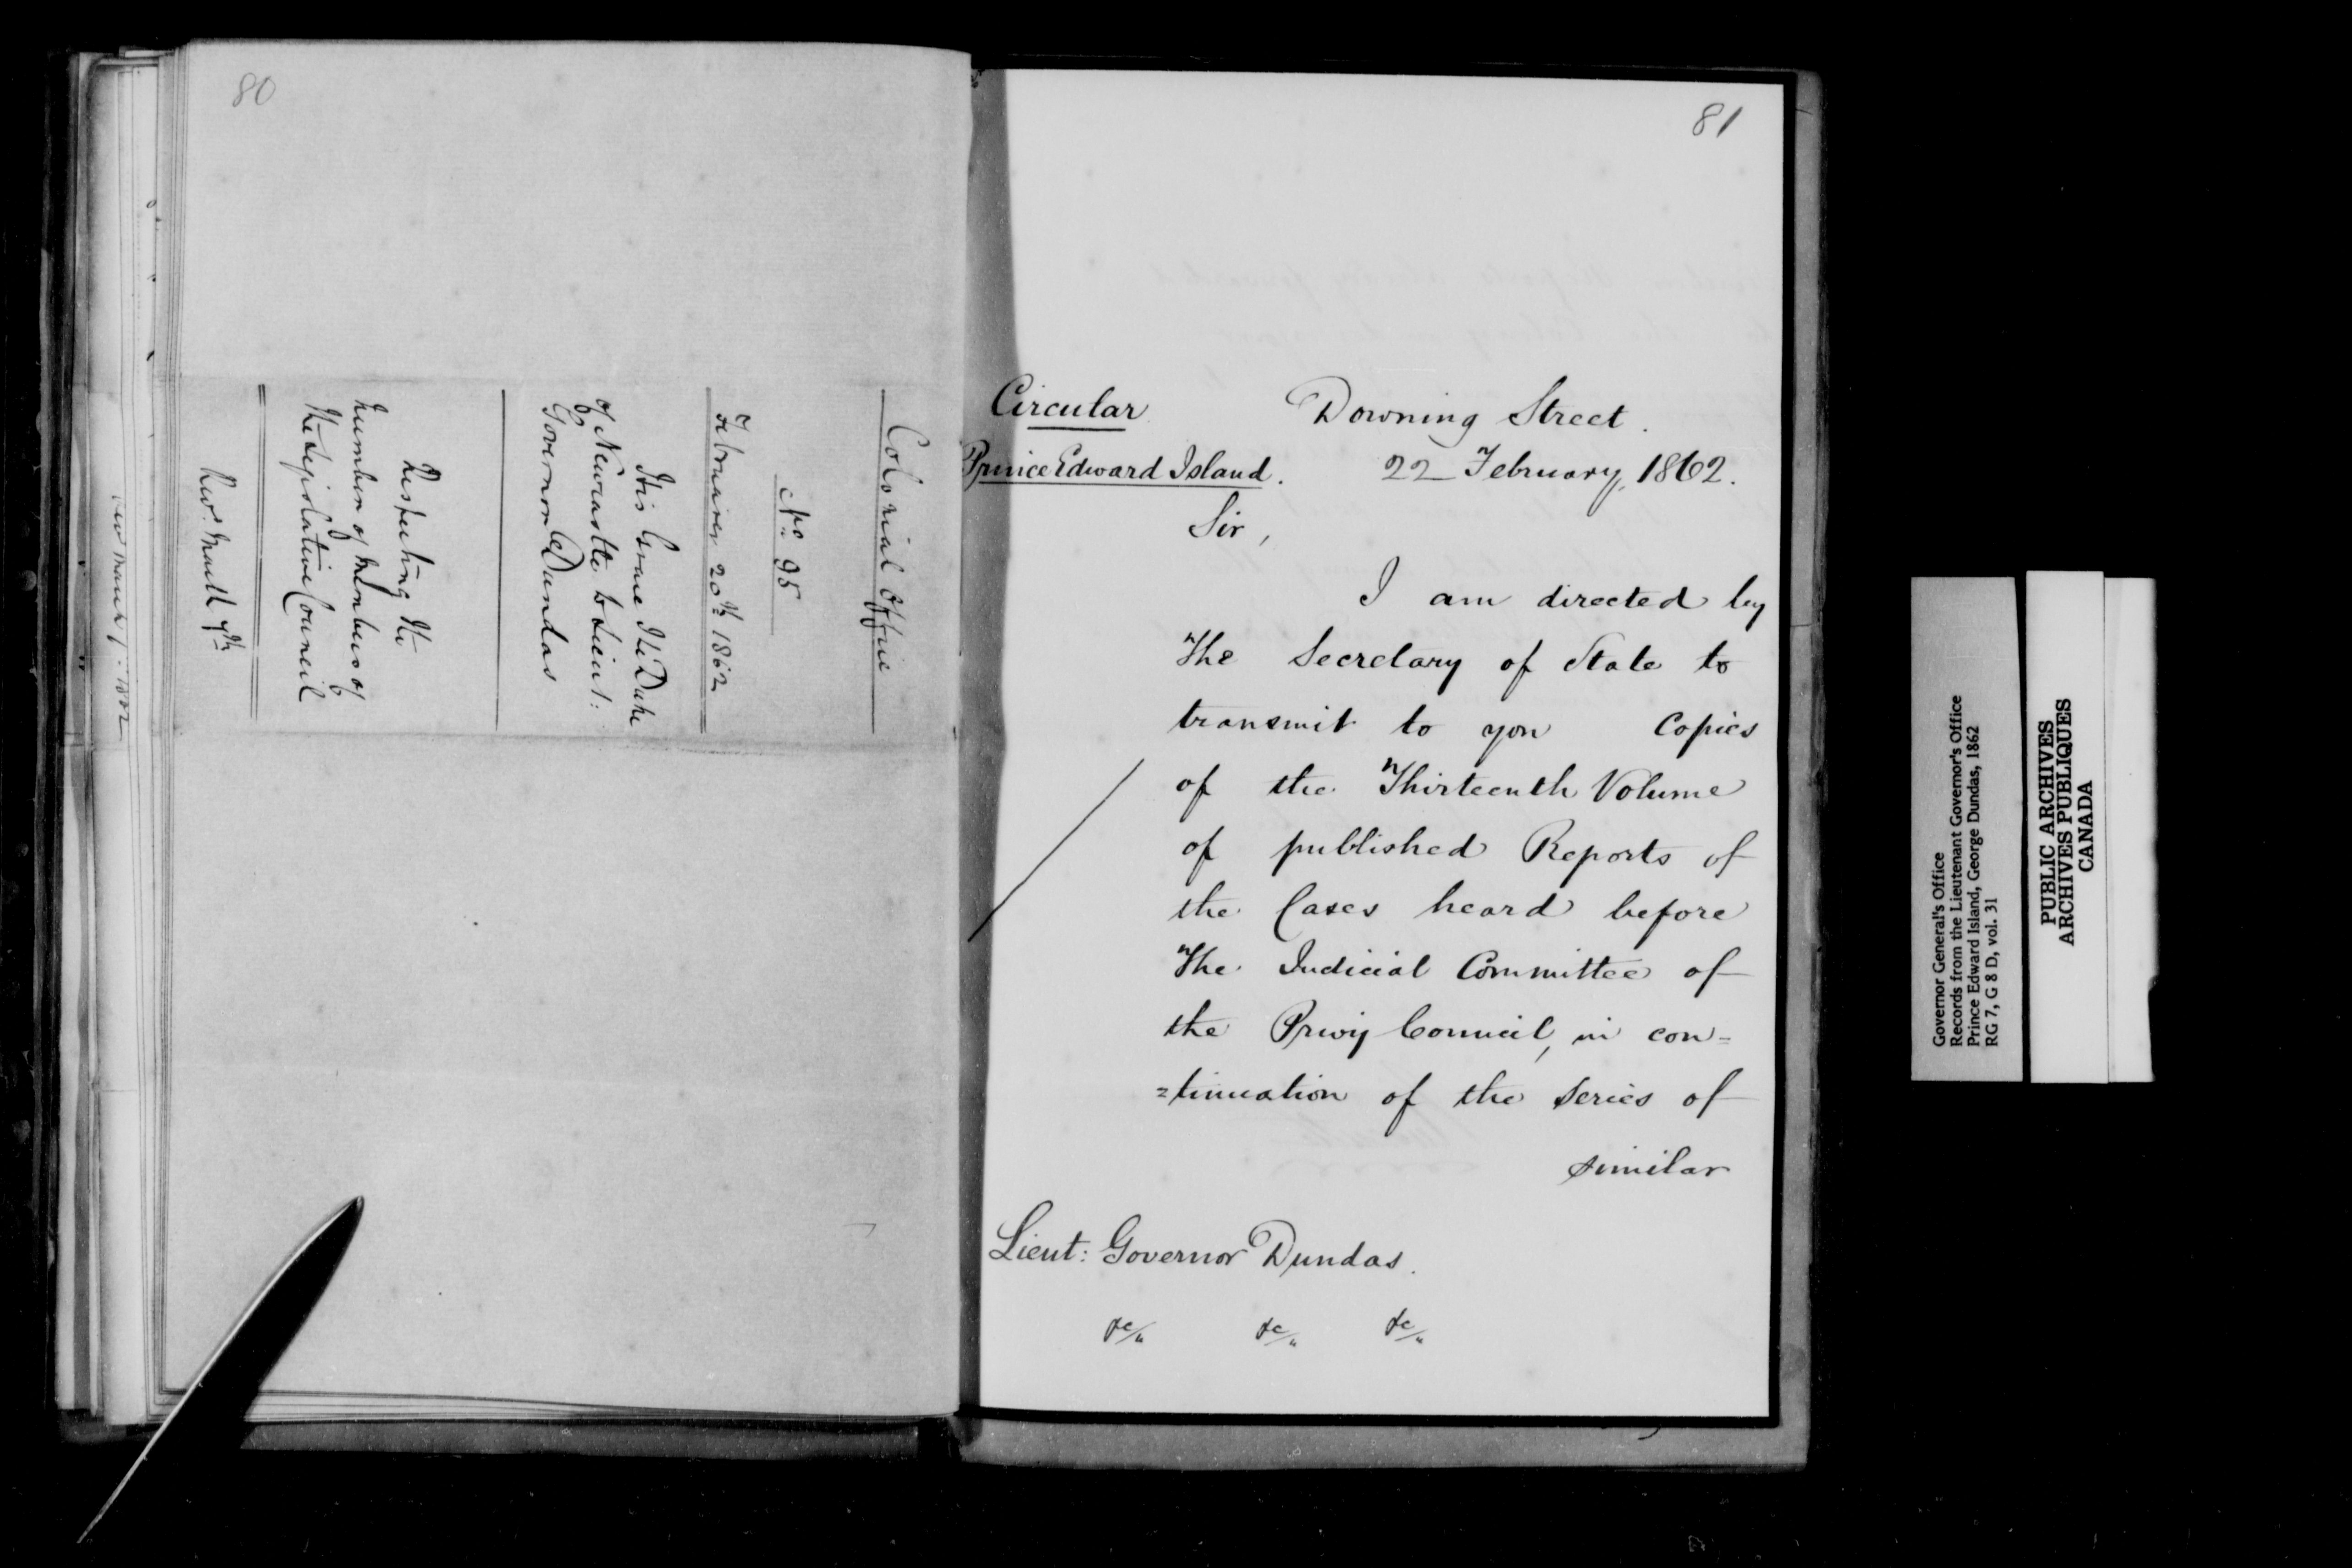 80
Colonial Office
No. 95
February 20th 1862
His Grace The Duke
of Newcastle to Lieut:
Governor Dundas
Respecting the
number of Members of
the Legislative Council
Rec'd. March 7th
81
Circular Downing Street.
Prince Edward Island. 22 February, 1862.
Sir,
I am directed by
The Secretary of State to
transmit to you Copies
of the Thirteenth Volume
of published Reports of
the Cases heard before
The Judicial Committee of
the Privy Council, in con=
=tinuation of the Series of
similar
Lieut: Governor Dundas.
&c/" &c/" &c/"
Governor General's Office
Records from the Lieutenant Governor's Office
Prince Edward Island, George Dundas, 1862
RG 7, G 8 D, vol. 31
PUBLIC ARCHIVES
ARCHIVES PUBLIQUES
CANADA